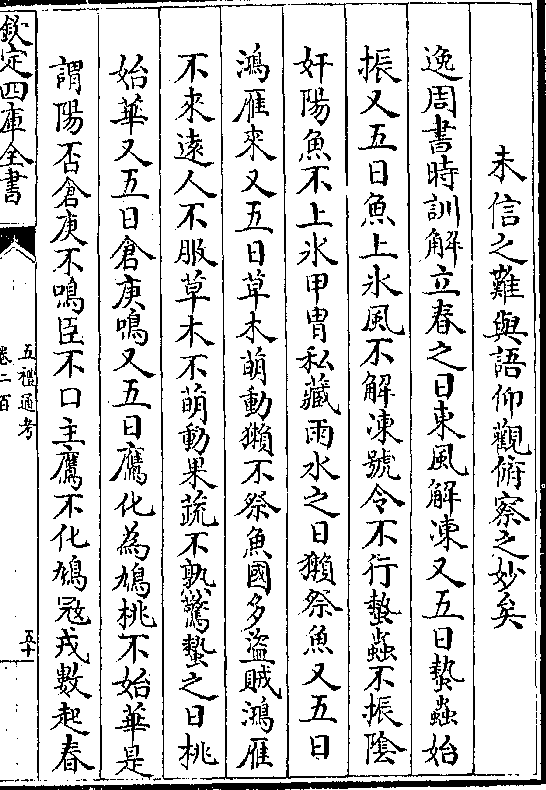 未信之難與語仰觀俯察之妙矣
逸周書時訓解立春之日東風解凍又五日蟄蟲始
振又五日魚上氷風不解凍號令不行蟄蟲不振陰
奸陽魚不上氷甲胄私藏雨水之日獺祭魚又五日
鴻雁來又五日草木萌動獺不祭魚國多盜賊鴻雁
不來遠人不服草木不萌動果蔬不熟驚蟄之日桃
始華又五日倉庚鳴又五日鷹化為鳩桃不始華是
謂陽否倉庚不鳴臣不口主鷹不化鳩冦戎數起春
欽定四庫全書
五禮通考
卷二百
五十